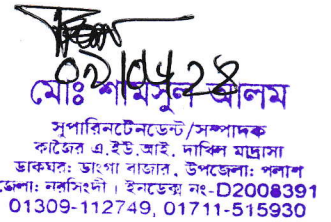 ০৯/০৫/২৪
মোঃ শামসুল আলম
সুপারিনটেনডেন্ট/সম্পাদক
কাজৈর এ.ইউ.আই. দাখিল মাদ্রাসা
ডাকঘর: ডাংগা বাজার, উপজেলা: পলাশ
জেলা: নরসিংদী। ইনডেক্স নং-D2008391
01309-112749, 01711-515930